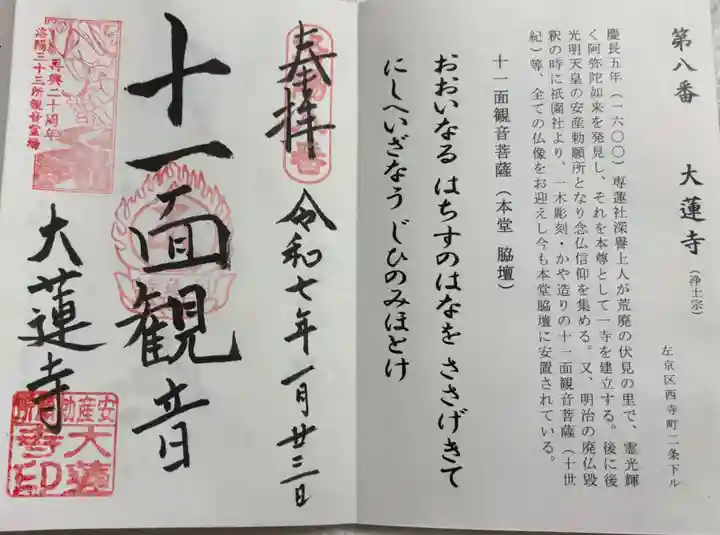 第八番　大蓮寺（浄土宗）
左京区西寺町二条下ル
慶長五年（一六〇〇）専蓮社深譽上人が荒廃の伏見の里で、霊光輝
く阿弥陀如来を発見し、それを本尊として一寺を建立する。後に後
光明天皇の安産勅願所となり念仏信仰を集める。又、明治の廃仏毀
釈の時に祇園社より、一木彫刻・かや造りの十一面観音菩薩（十世
紀）等、全ての仏像をお迎えし今も本堂脇壇に安置されている。
十一面観音菩薩（本堂 脇壇）
おおいなる はちすのはなを ささげきて
にしへいざなう じひのみほとけ
奉拝
令和七年一月廿三日
十一面観音
大蓮寺
再興二十周年
洛陽三十三所観音霊場